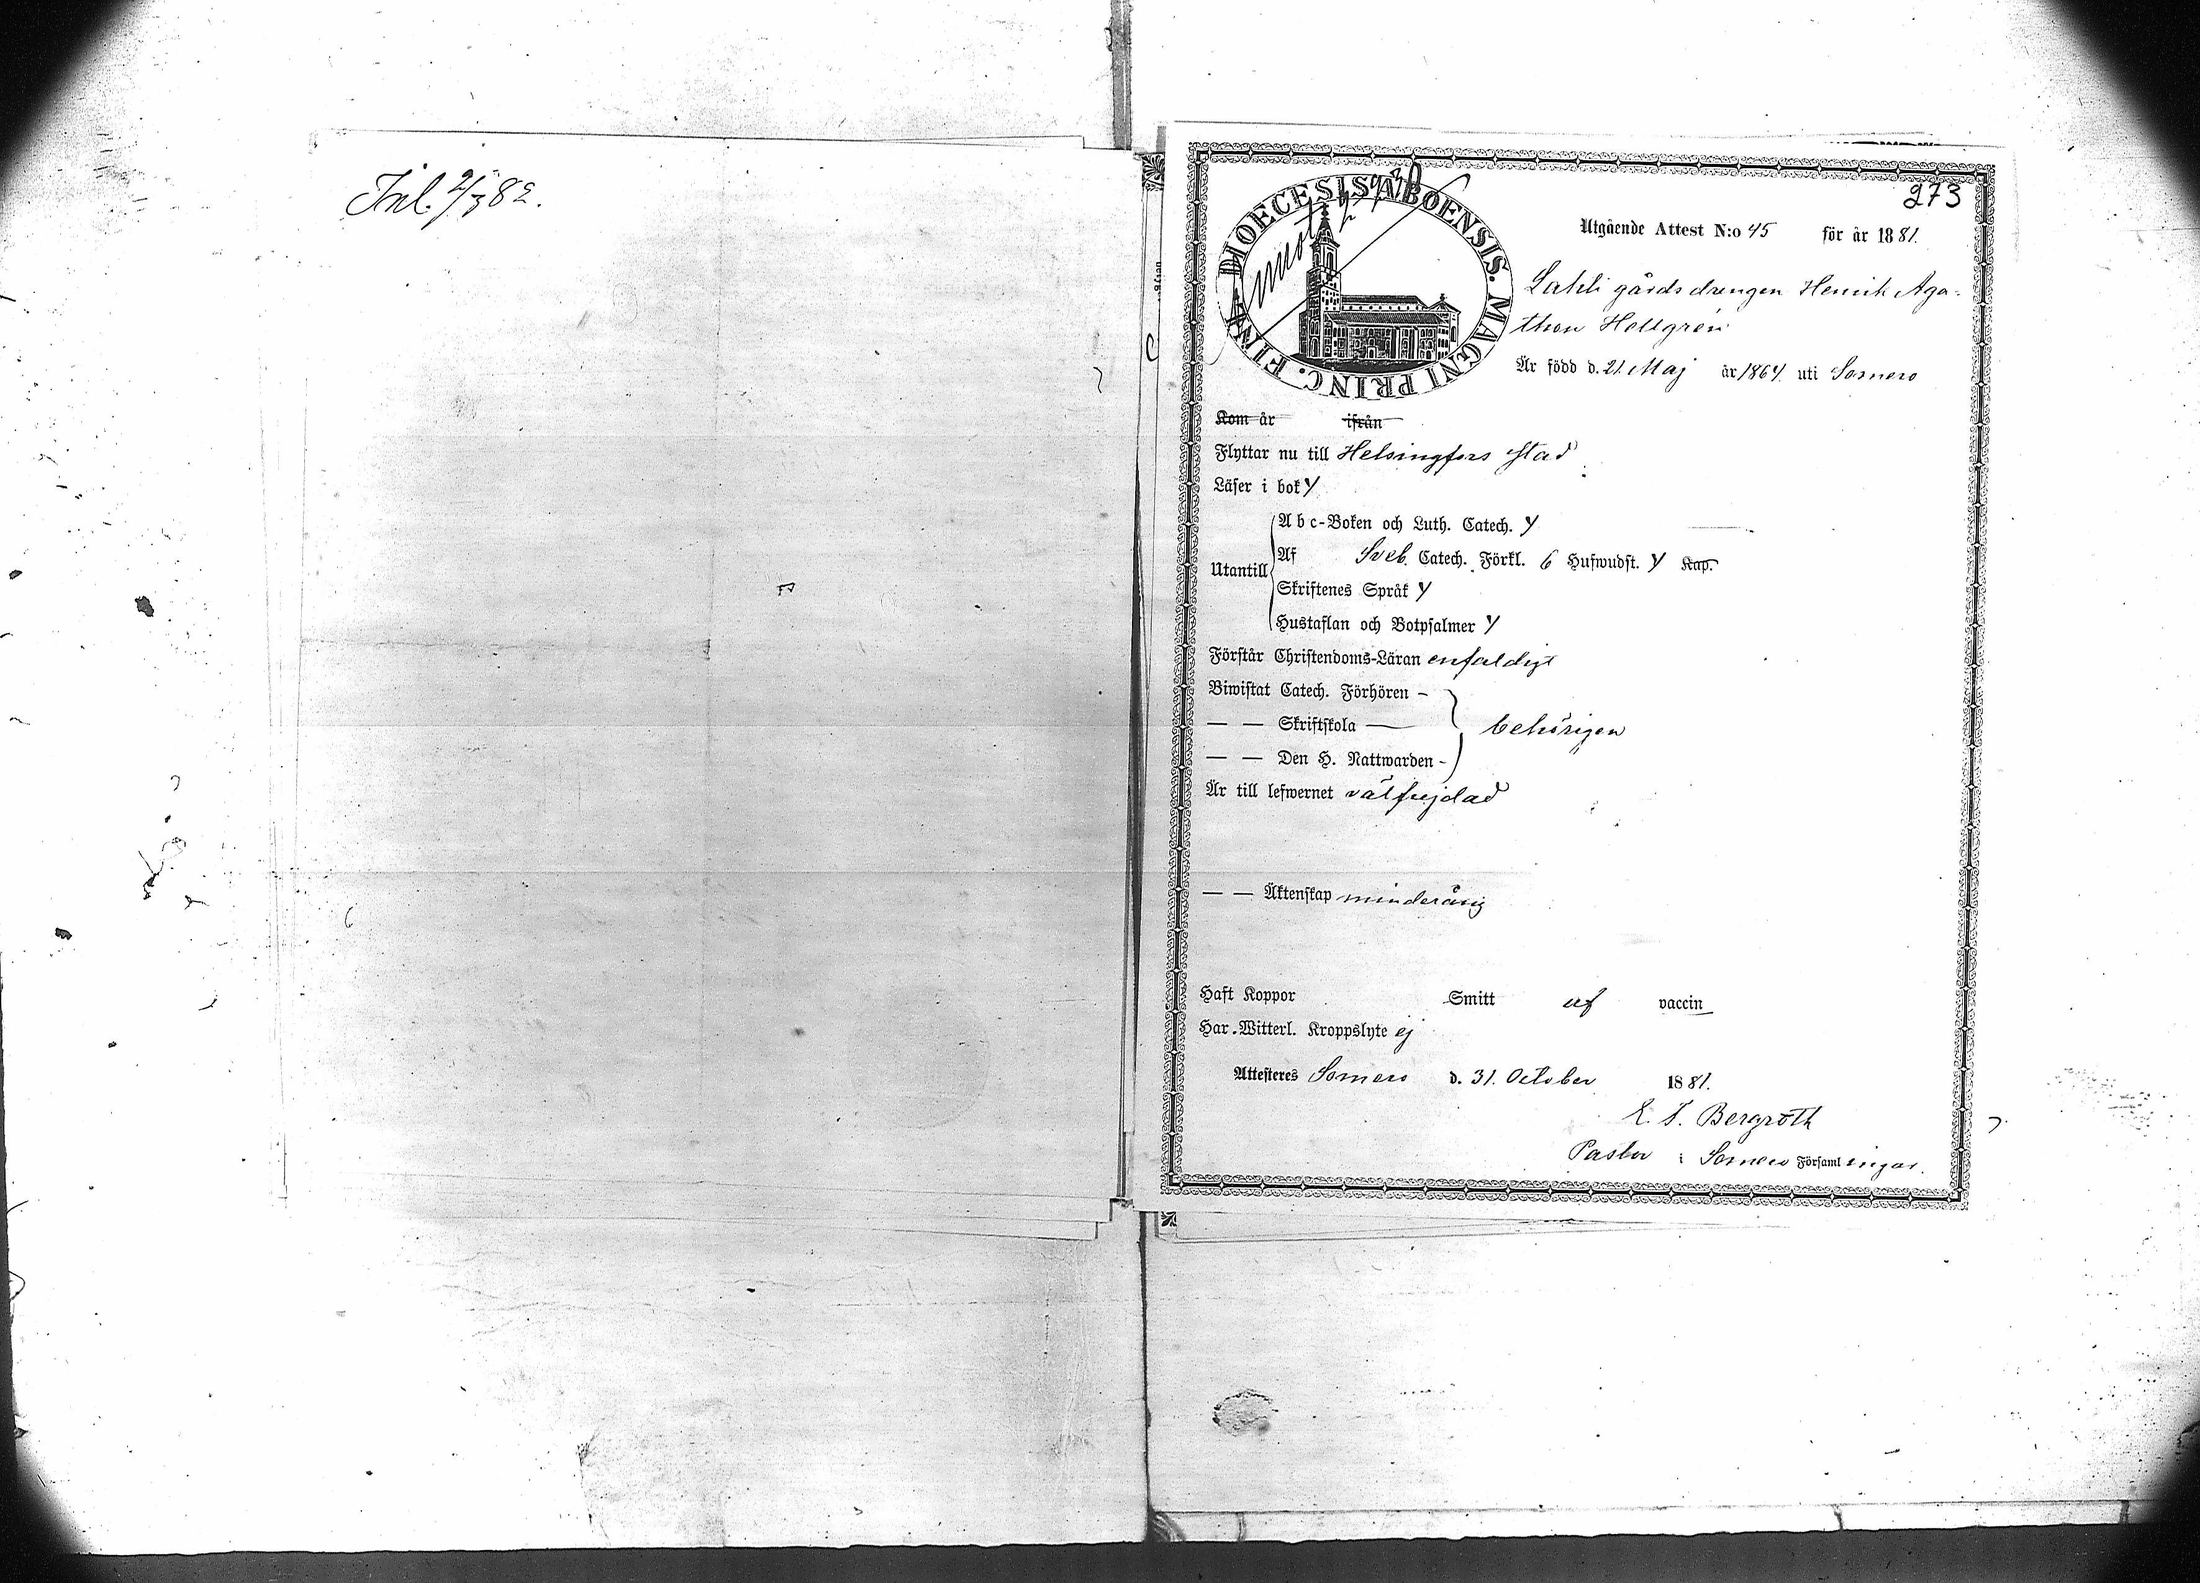 Inl. 2/3 82.
273
DIOECESIS ABOENSIS. MAGNI PRINC. FINL.
Utgående Attest N:o 45 för år 1881.
Lahti gårds drengen Henrik Aga-
thon Hellgrén
Är född d. 21. Maj år 1864. uti Somero
Kom år ifrån
Flyttar nu till Helsingfors Stad
Läser i bok y
Utantill
Abc-Boken och Luth. Catech. y
Af Sveb. Catech. Förkl. 6 Hufwudst. y Kap.
Skriftenes Språk y
Hustaflan och Botpsalmer y
Förstår Christendoms-Läran enfaldigt
Biwistat Catech. Förhören -
— — Skriftskola — behörigen
— — Den H. Nattwarden -
Är till lefwernet välfrejdad
— — Äktenskap minderårig
Haft Koppor Smitt af vaccin
Har Witterl. Kroppslyte ej
Attesteres Somero d. 31. October 1881.
E. F. Bergroth
Pastor i Somero Församlingar.